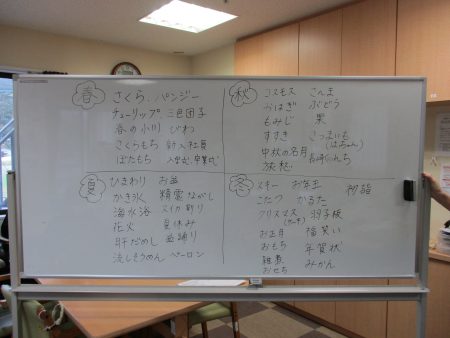 春
さくら、パンジー
チューリップ、三色団子
春の小川 びわ
さくらもち 新入社員
ぼたもち 入学式、卒業式
秋
コスモス さんま
おはぎ ぶどう
もみじ 栗
すすき さつまいも
中秋の名月
旅愁
夏
ひまわり お盆
かき氷 精霊ながし
海水浴 スイカ割り
花火 夏休み
肝だめし 盆踊り
流しそうめん ペーロン
冬
スキー お年玉 初詣
こたつ かるた
クリスマス 羽子板
(ケーキ)
お正月 福笑い
おもち 年賀状
雑煮 みかん
おせち